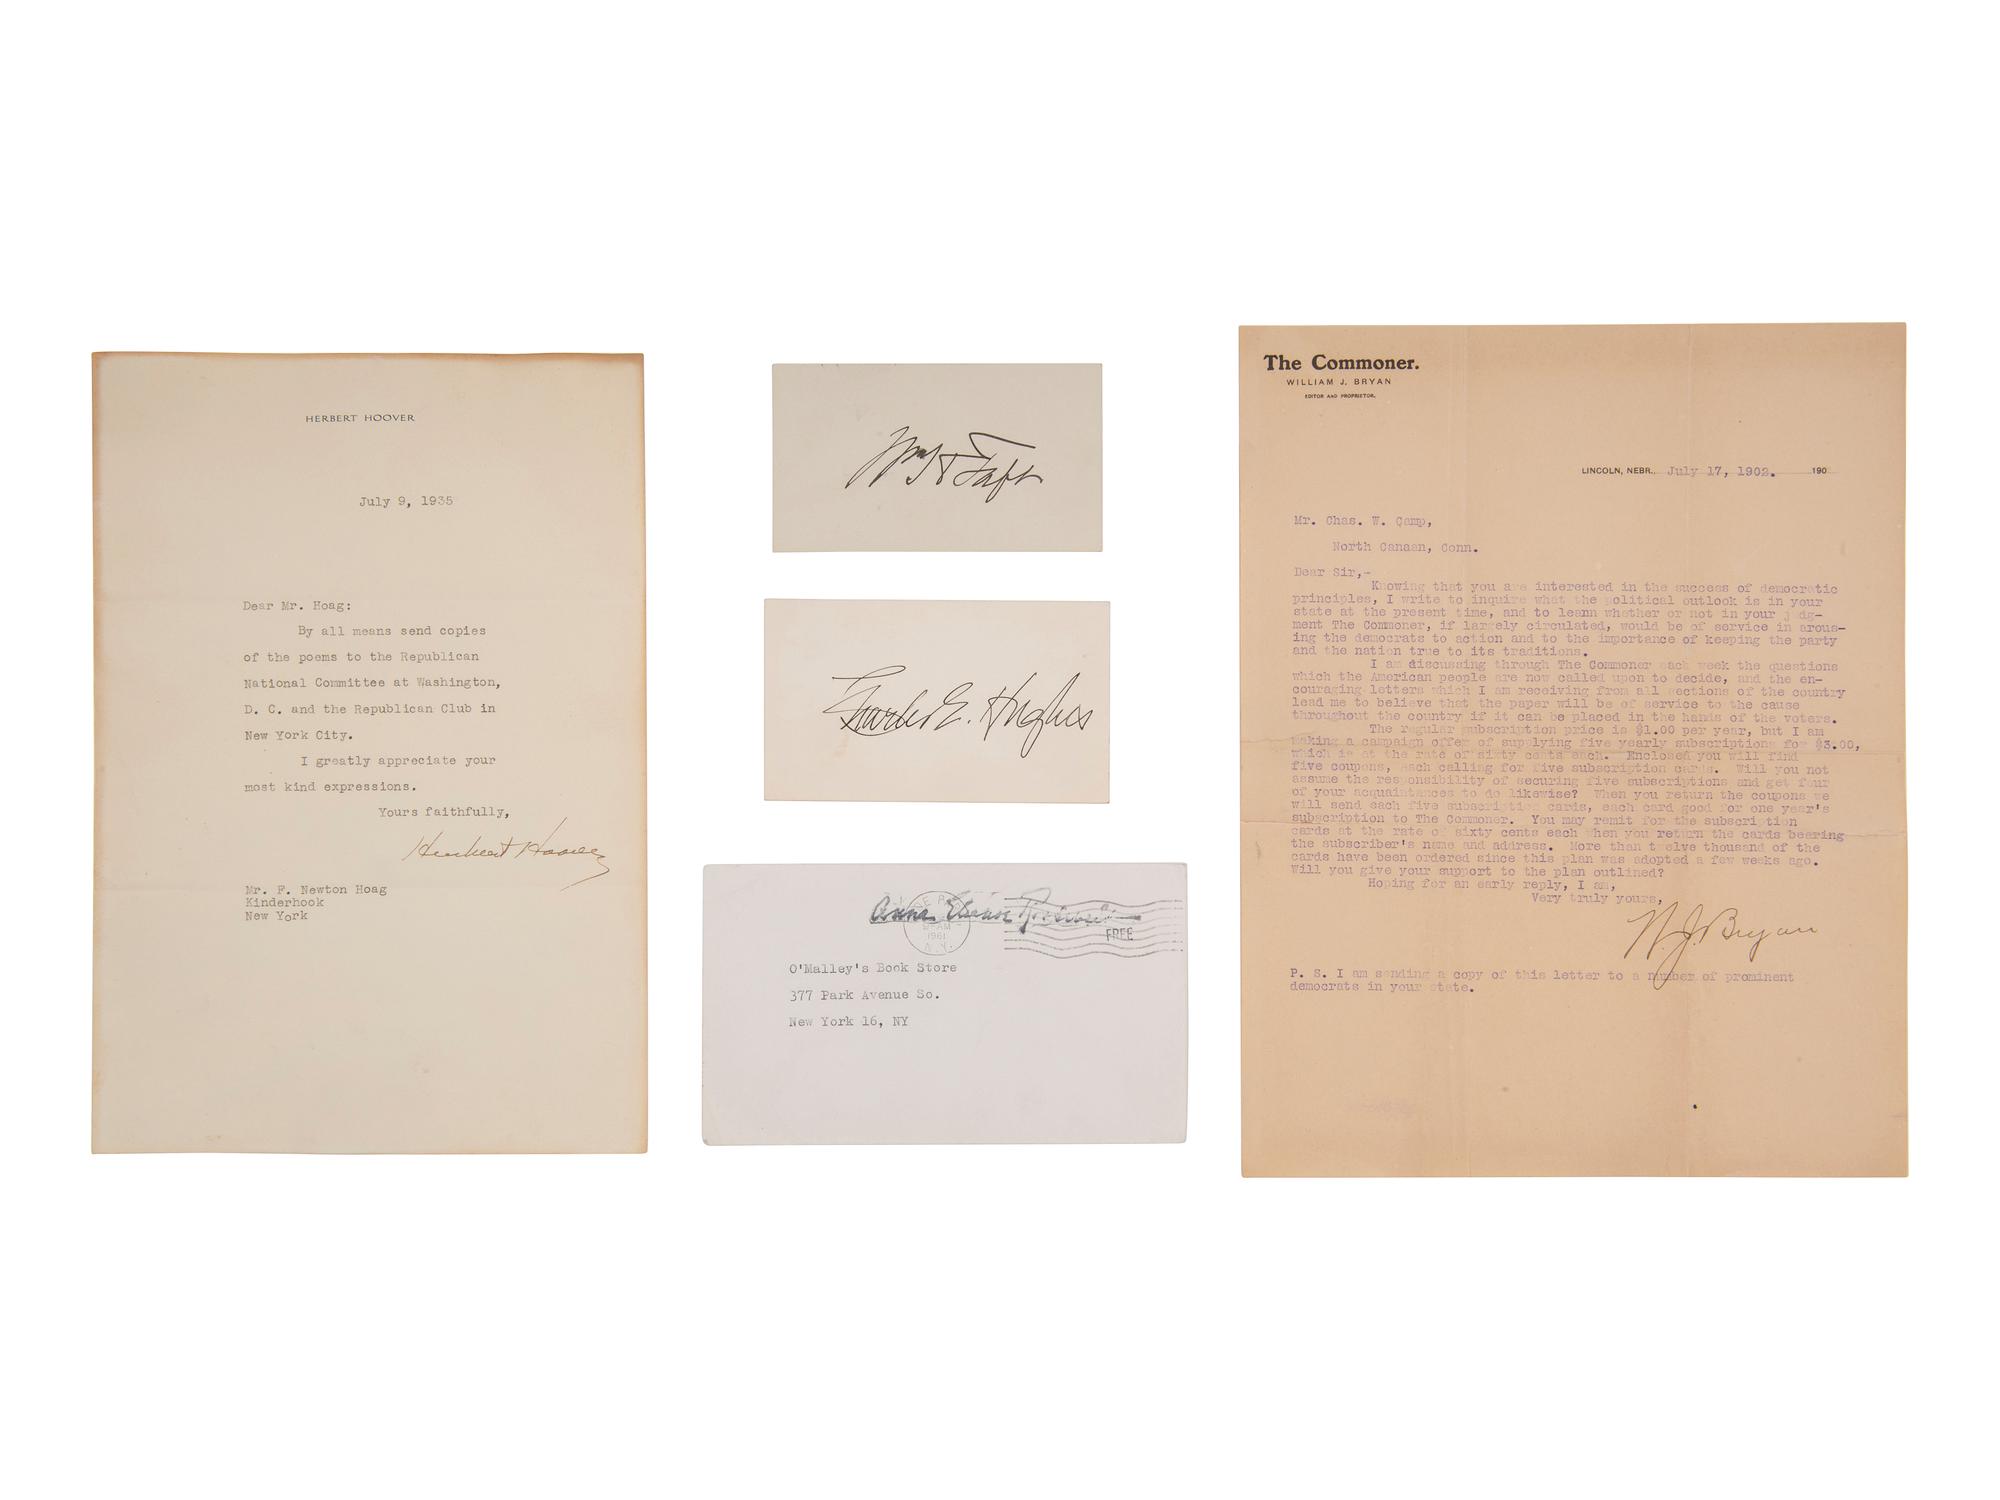 HERBERT HOOVER
July 9, 1935
Dear Mr. Hoag:
By all means send copies
of the poems to the Republican
National Committee at Washington,
D. C. and the Republican Club in
New York City.
I greatly appreciate your
most kind expressions.
Yours faithfully,
Herbert Hoover
Mr. F. Newton Hoag
Kinderhook
New York
Wm H Taft
Charles E. Hughes
Anna Eleanor Roosevelt
AM
1961
N.Y.
FREE
O'Malley's Book Store
377 Park Avenue So.
New York 16, NY
The Commoner.
WILLIAM J. BRYAN
EDITOR AND PROPRIETOR.
LINCOLN, NEBR., July 17, 1902. 190
Mr. Chas. W. Camp,
North Canaan, Conn.
Dear Sir,-
Knowing that you are interested in the success of democratic
principles, I write to inquire what the political outlook is in your
state at the present time, and to learn whether or not in your judg-
ment The Commoner, if largely circulated, would be of service in arous-
ing the democrats to action and to the importance of keeping the party
and the nation true to its traditions.
I am discussing through The Commoner each week the questions
which the American people are now called upon to decide, and the en-
couraging letters which I am receiving from all sections of the country
lead me to believe that the paper will be of service to the cause
throughout the country if it can be placed in the hands of the voters.
The regular subscription price is $1.00 per year, but I am
making a campaign offer of supplying five yearly subscriptions for $3.00,
which is at the rate of sixty cents each. Enclosed you will find
five coupons, each calling for five subscription cards. Will you not
assume the responsibility of securing five subscriptions and get four
of your acquaintances to do likewise? When you return the coupons we
will send each five subscription cards, each card good for one year's
subscription to The Commoner. You may remit for the subscription
cards at the rate of sixty cents each when you return the cards bearing
the subscriber's name and address. More than twelve thousand of the
cards have been ordered since this plan was adopted a few weeks ago.
Will you give your support to the plan outlined?
Hoping for an early reply, I am,
Very truly yours,
W. J. Bryan
P. S. I am sending a copy of this letter to a number of prominent
democrats in your state.